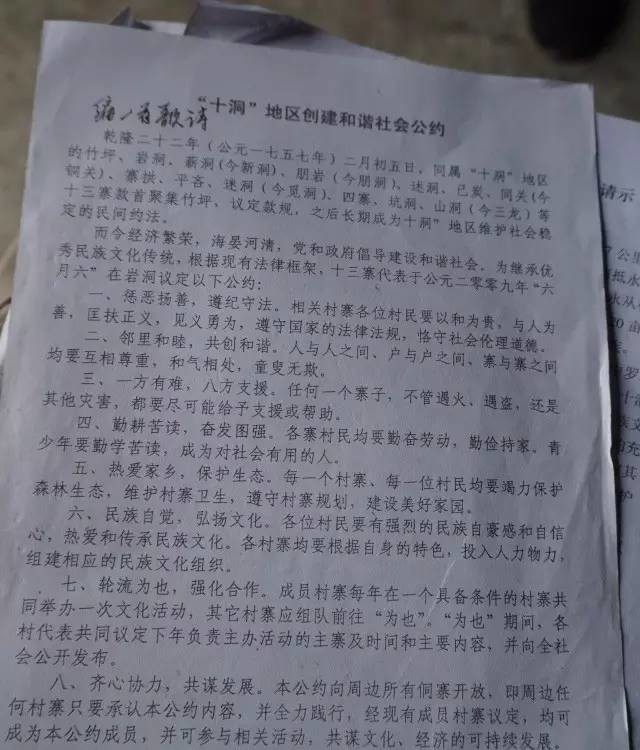 编一首歌诗
“十洞”地区创建和谐社会公约
乾隆二十二年（公元一七五七年）二月初五日，同属“十洞”地区
的竹坪、岩洞、薪洞（今新洞）、朋岩（今朋洞）、述洞、已炭、同关（今
铜关）、寨拱、平吝、迷洞（今觅洞）、四寨、坑洞、山洞（今三龙）等
十三寨款首聚集竹坪、议定款规，之后长期成为十洞”地区维护社会稳
定的民间约法。
而今经济繁荣，海晏河清，党和政府倡导建设和谐社会。为继承优
秀民族文化传统，根据现有法律框架，十三寨代表于公元二零零九年“六
月六”在岩洞议定以下公约：
一、惩恶扬善，遵纪守法。相关村寨各位村民要以和为贵，与人为
善，匡扶正义，见义勇为，遵守国家的法律法规，恪守社会伦理道德。
二、邻里和睦，共创和谐。人与人之间、户与户之间、寨与寨之间
均要互相尊重，和气相处，童叟无欺。
三、一方有难，八方支援。任何一个寨子，不管遇火、遇盗，还是
其他灾害，都要尽可能给予支援或帮助。
四、勤耕苦读，奋发图强。各寨村民均要勤奋劳动，勤俭持家。青
少年要勤学苦读，成为对社会有用的人。
五、热爱家乡，保护生态。每一个村寨、每一位村民均要竭力保护
森林生态，维护村寨卫生，遵守村寨规划，建设美好家园。
六、民族自觉，弘扬文化。各位村民要有强烈的民族自豪感和自信
心，热爱和传承民族文化。各村寨均要根据自身的特色，投入人力物力，
组建相应的民族文化组织。
七、轮流为也，强化合作。成员村寨每年在一个具备条件的村寨共
同举办一次文化活动，其它村寨应组队前往“为也”。“为也”期间，各
村代表共同议定下年负责主办活动的主寨及时间和主要内容，并向全社
会公开发布。
八、齐心协力，共谋发展。本公约向周边所有侗寨开放，即周边任
何村寨只要承认本公约内容，并全力践行，经现有成员村寨议定，均可
成为本公约成员，并可参与相关活动，共谋文化、经济的可持续发展。
请示